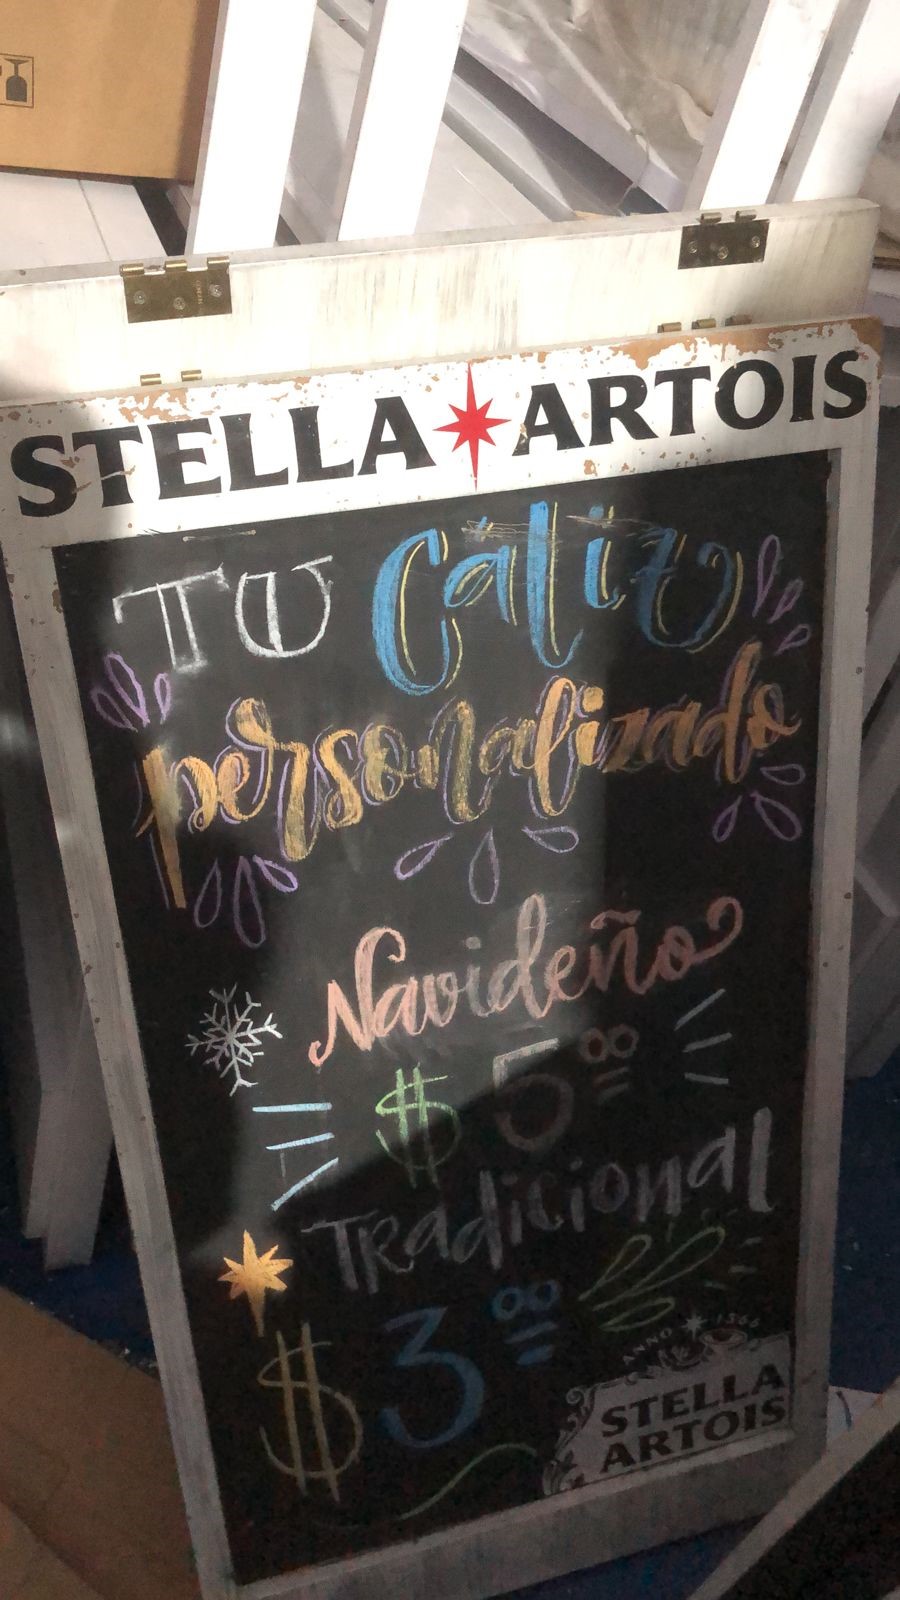 STELLA ARTOIS
TU Cáliz
personalizado
Navideño
$ 5.00
TRadicional
$ 3.00
ANNO 1366
STELLA
ARTOIS